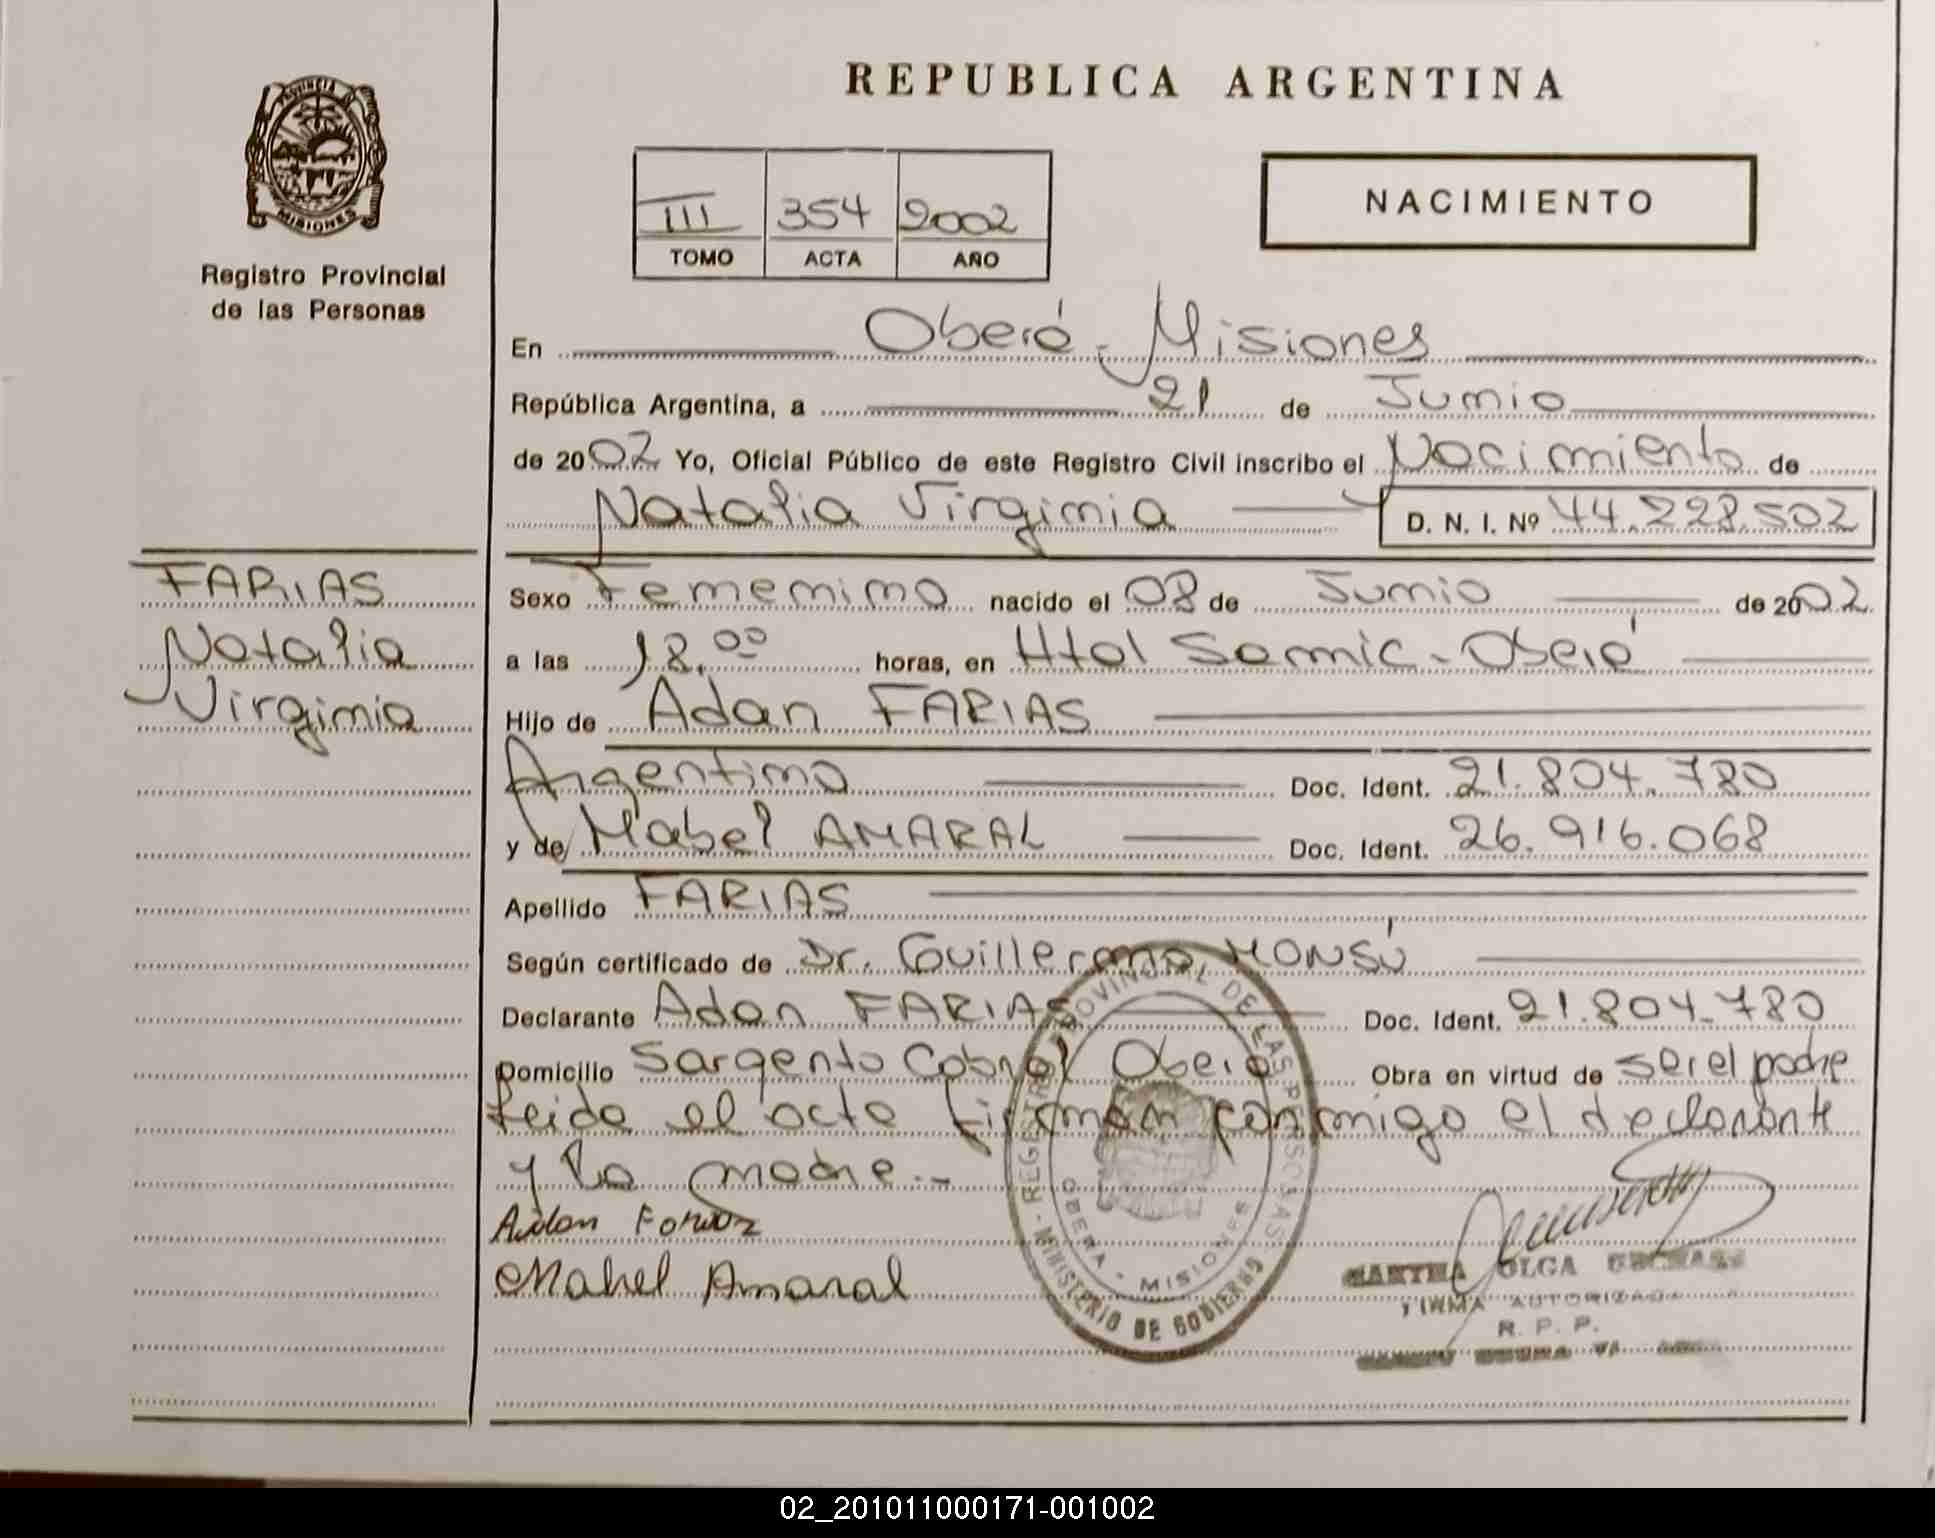 REPUBLICA ARGENTINA
PROVINCIA DE
MISIONES
Registro Provincial
de las Personas
III 354 2002
TOMO ACTA AÑO
NACIMIENTO
En Oberá - Misiones
República Argentina, a 21 de Junio
de 2002 Yo, Oficial Público de este Registro Civil inscribo el Nacimiento de
Natalia Virginia D. N. I. Nº 44.228.502
FARIAS
Natalia
Virginia
Sexo Femenino nacido el 08 de Junio de 2002
a las 18.00 horas, en Htal Samic - Oberá
Hijo de Adan FARIAS
Argentino Doc. Ident. 21.804.780
y de Mabel AMARAL Doc. Ident. 26.916.068
Apellido FARIAS
Según certificado de Dr. Guillermo MONSÚ
Declarante Adan FARIAS Doc. Ident. 21.804.780
Domicilio Sargento Cabral Oberá Obra en virtud de ser el padre
Leida el acta firman conmigo el declarante
y la madre.-
Adan Farias
Mabel Amaral
REGISTRO PROVINCIAL DE LAS PERSONAS
MINISTERIO DE GOBIERNO
OBERA - MISIONES
MARTHA OLGA
FIRMA AUTORIZADA
R. P. P.
02_201011000171-001002